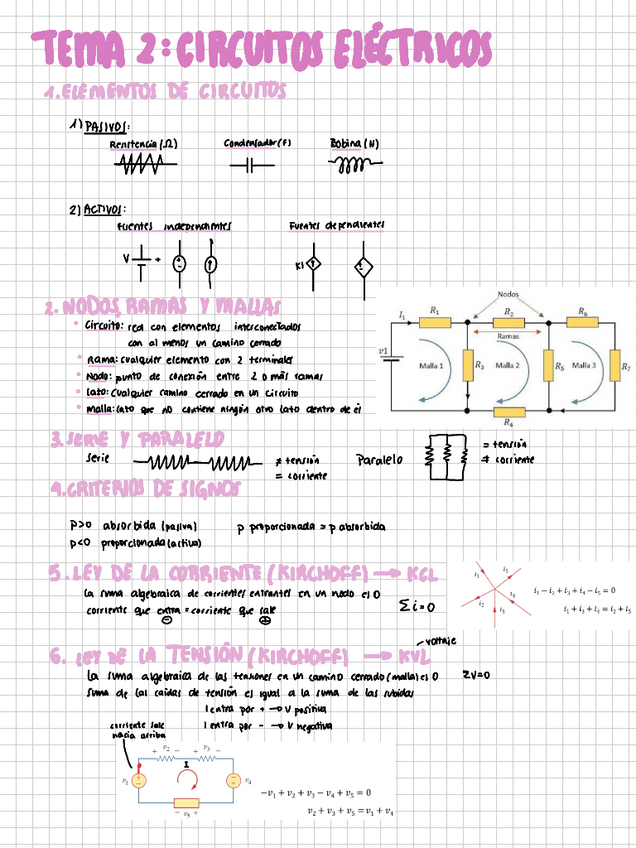 TEMA 2: CIRCUITOS ELÉCTRICOS
1. ELEMENTOS DE CIRCUITOS
1) PASIVOS:
Resistencia (Ω) Condensador (F) Bobina (H)
2) ACTIVOS:
Fuentes independientes Fuentes dependientes
V + - + K1
2. NODOS, RAMAS Y MALLAS
• Circuito: red con elementos interconectados
con al menos un camino cerrado
• Rama: cualquier elemento con 2 terminales
• Nodo: punto de conexión entre 2 o más ramas
• Lato: cualquier camino cerrado en un circuito
• Malla: lato que no contiene ningún otro lato dentro de él
Nodos
I₁ R₁ R₂ R₆
Ramas
v1 Malla 1 R₃ Malla 2 R₅ Malla 3 R₇
R₄
3. SERIE Y PARALELO
Serie ≠ tensión Paralelo = tensión
= corriente ≠ corriente
4. CRITERIOS DE SIGNOS
p>0 absorbida (pasiva) p proporcionada = p absorbida
p<0 proporcionada (activa)
5. LEY DE LA CORRIENTE (KIRCHOFF) → KCL
La suma algebraica de corrientes entrantes en un nodo es 0
corriente que entra = corriente que sale Σi=0
⊖ ⊕
i₁ i₅ i₂ i₃ i₄
i₁ − i₂ + i₃ + i₄ − i₅ = 0
i₁ + i₃ + i₄ = i₂ + i₅
voltaje
6. LEY DE LA TENSIÓN (KIRCHOFF) → KVL
La suma algebraica de las tensiones en un camino cerrado (malla) es 0 ΣV=0
Suma de las caídas de tensión es igual a la suma de las subidas
I entra por + → V positiva
I entra por - → V negativa
corriente sale
hacia arriba
+ v₂ − + v₃ −
v₁ I v₄
− v₅ +
−v₁ + v₂ + v₃ − v₄ + v₅ = 0
v₂ + v₃ + v₅ = v₁ + v₄